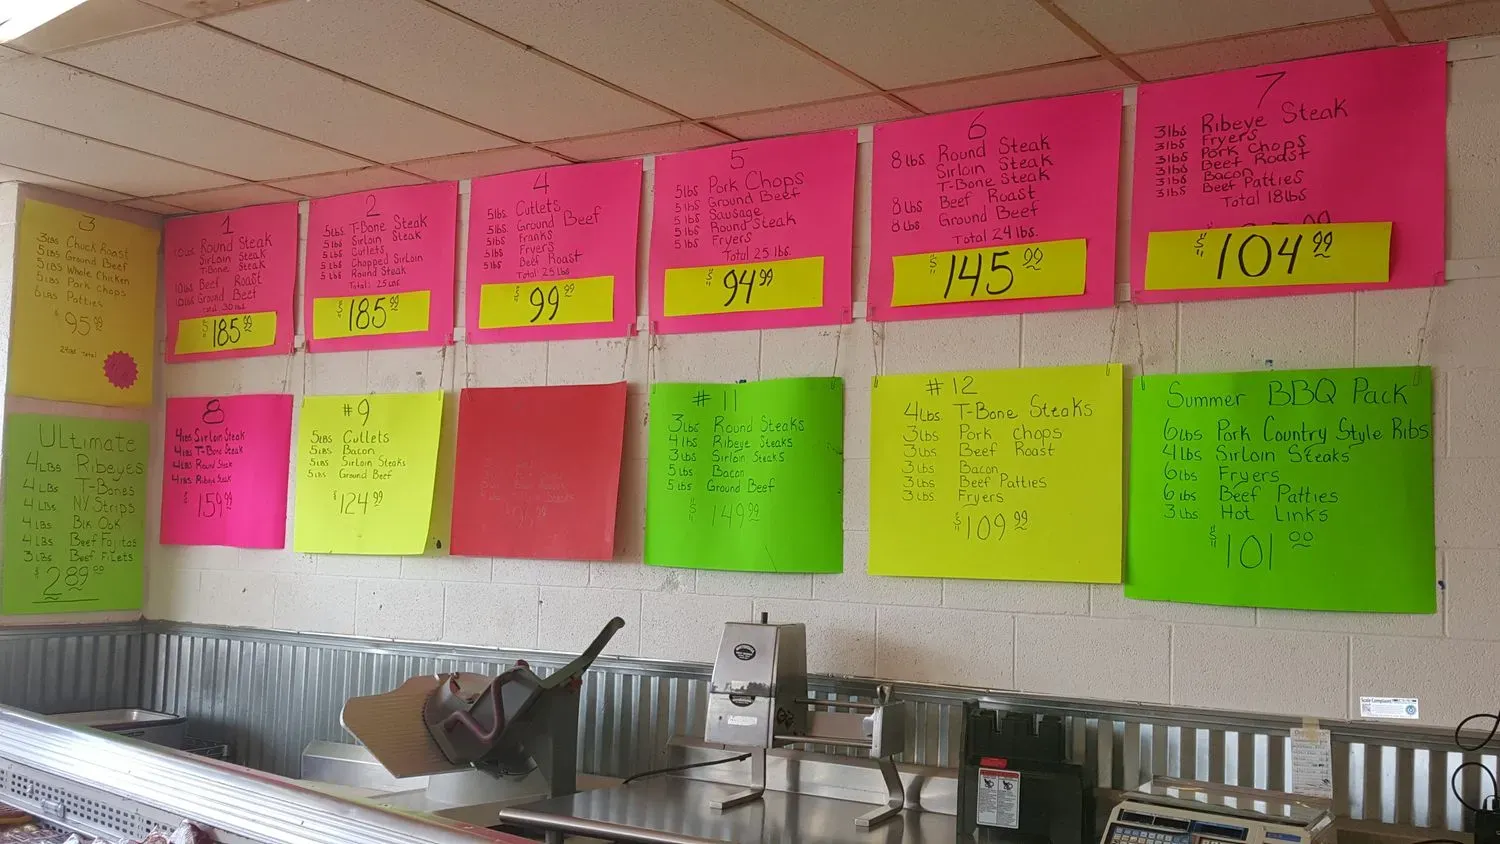 3
3lbs Chuck Roast
5lbs Ground Beef
5lbs Whole Chicken
5lbs Pork Chops
6lbs Patties
$95.99
24lbs total
1
10lbs Round Steak
Sirloin Steak
T-Bone Steak
10lbs Beef Roast
10lbs Ground Beef
Total 30 lbs
$185.99
2
5lbs T-Bone Steak
5lbs Sirloin Steak
5lbs Cutlets
5lbs Chopped Sirloin
5lbs Round Steak
Total: 25 lbs
$185.99
4
5lbs. Cutlets
5lbs. Ground Beef
5lbs. Franks
5lbs. Fryers
5lbs Beef Roast
Total: 25 lbs
$99.99
5
5lbs Pork Chops
5lbs Ground Beef
5lbs Sausage
5lbs Round Steak
5lbs Fryers
Total 25 lbs.
$94.99
6
8lbs Round Steak
Sirloin Steak
T-Bone Steak
8lbs Beef Roast
8lbs Ground Beef
Total 24 lbs.
$145.99
7
3lbs Ribeye Steak
3lbs Fryers
3lbs Pork Chops
3lbs Beef Roast
3lbs Bacon
3lbs Beef Patties
Total 18lbs
$104.99
ULtimate
4 LBs Ribeyes
4 LBs T-Bones
4 LBs NY Strips
4 LBs
4 LBs Beef Fajitas
3 LBs Beef Filets
$289.00
8
4lbs Sirloin Steak
4lbs T-Bone Steak
4lbs Round Steak
4lbs Ribeye Steak
$159.99
#9
5LBs Cutlets
5LBs Bacon
5LBs Sirloin Steaks
5LBs Ground Beef
$124.99
#11
3Lbs Round Steaks
4Lbs Ribeye Steaks
3Lbs Sirloin Steaks
5Lbs Bacon
5Lbs Ground Beef
$149.99
#12
4Lbs T-Bone Steaks
3Lbs Pork chops
3Lbs Beef Roast
3Lbs Bacon
3Lbs Beef Patties
3Lbs Fryers
$109.99
Summer BBQ Pack
6Lbs Pork Country Style Ribs
4lbs Sirloin Steaks
6lbs Fryers
6lbs Beef Patties
3lbs Hot Links
$101.00